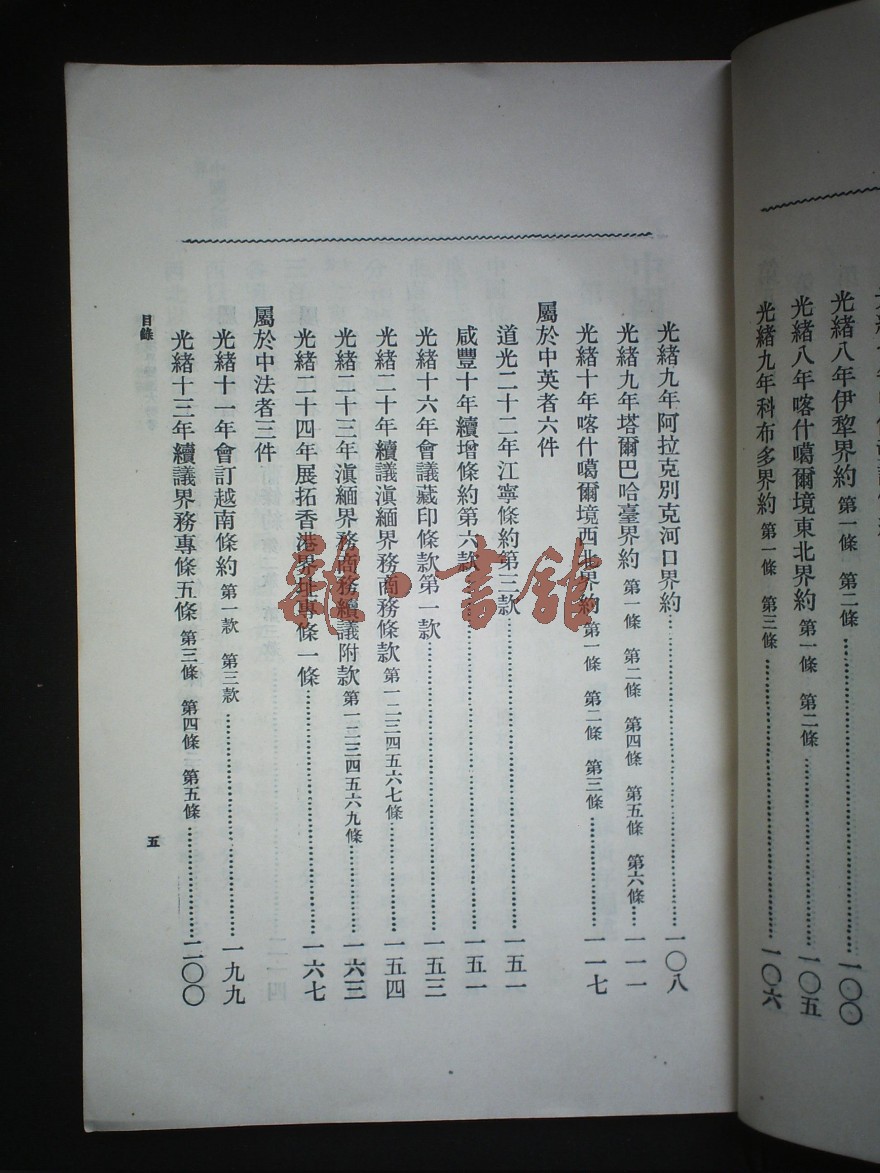 光緒八年伊犂界約 第一條 第二條……一〇〇
光緒八年喀什噶爾境東北界約 第一條 第二條……一〇五
光緒九年科布多界約 第一條 第三條……一〇六
光緒九年阿拉克別克河口界約……一〇八
光緒九年塔爾巴哈臺界約 第一條 第二條 第四條 第五條 第六條……一一一
光緒十年喀什噶爾境西北界約 第一條 第二條 第三條……一一七
屬於中英者六件
道光二十二年江寧條約第三款……一五一
咸豐十年續增條約第六款……一五一
光緒十六年會議藏印條款第一款……一五三
光緒二十年續議滇緬界務商務條款 第一二三四五六七條……一五四
光緒二十三年滇緬界務商務續議附款 第一二三四五六九條……一六三
光緒二十四年展拓香港界址專條一條……一六七
屬於中法者三件
光緒十一年會訂越南條約 第一款 第三款……一九九
光緒十三年續議界務專條五條 第三條 第四條 第五條……二〇〇
目錄
五
雜·書館